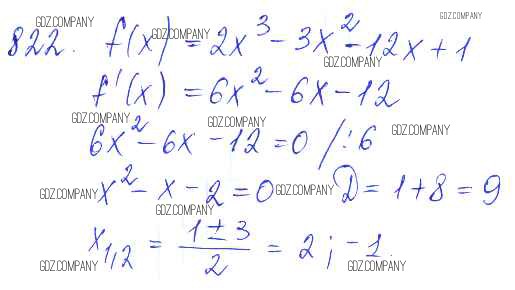 GDZ.COMPANY GDZ.COMPANY
822. f(x) GDZ.COMPANY = 2x³ - 3x² - 12x + 1
GDZ.COMPANY
f'(x) = 6x² - 6x - 12
GDZ.COMPANY GDZ.COMPANY GDZ.COMPANY
6x² - 6x - 12 = 0 /:6
GDZ.COMPANY x² - x - 2 = 0 GDZ.COMPANY D = 1 + 8 = 9
GDZ.COMPANY
x₁,₂ = (1 ± 3)/2 = 2; -1.
GDZ.COMPANY GDZ.COMPANY